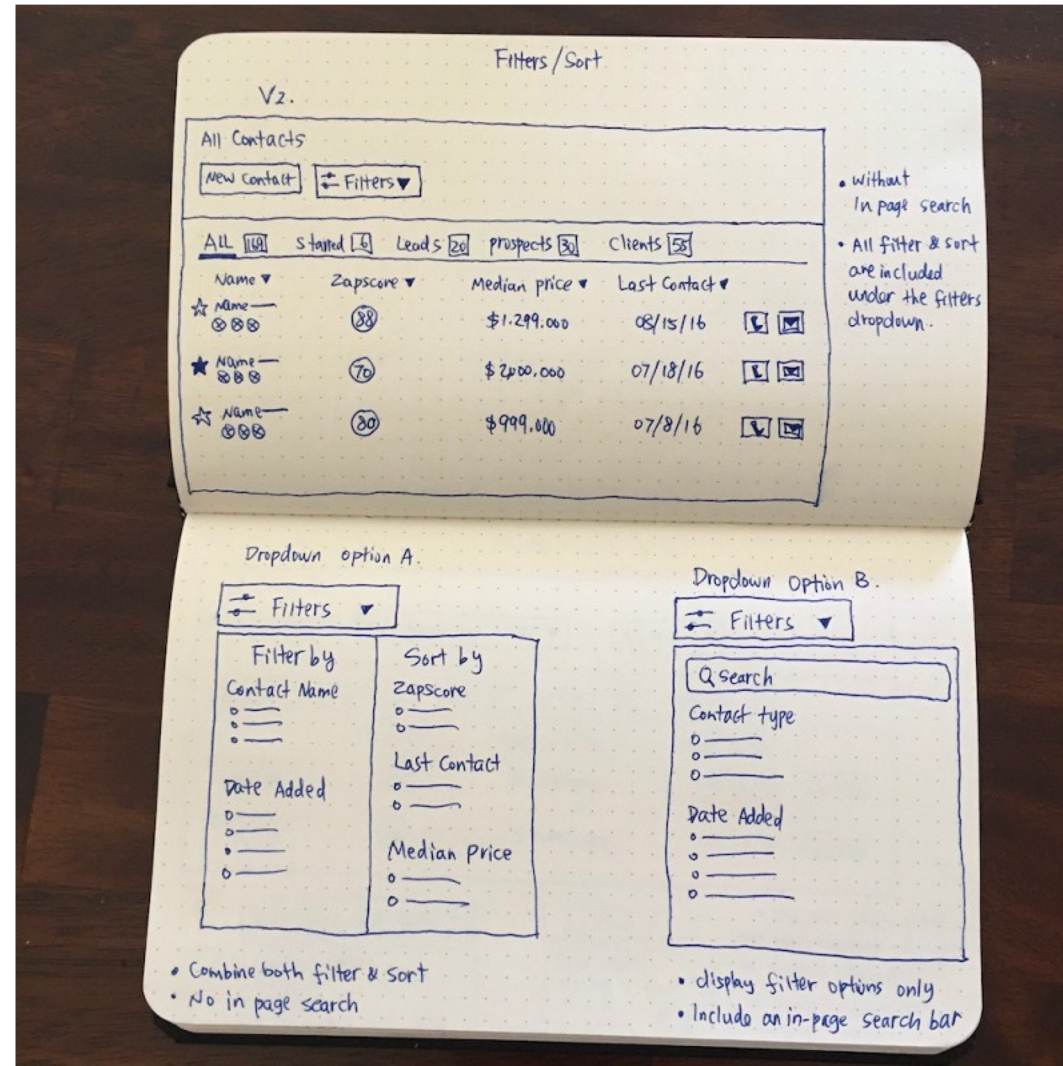 Filters/Sort
V2.
All Contacts
New Contact Filters ▼
ALL 169 Starred 6 Leads 20 prospects 30 Clients 55
Name ▼ Zapscore ▼ Median price ▼ Last Contact ▼
Name
88 $1.299.000 08/15/16
Name
70 $2,000.000 07/18/16
Name
80 $999.000 07/8/16
• without
In page search
• All filter & sort
are included
under the filters
dropdown.
Dropdown option A.
Filters ▼
Filter by
Contact Name
Date Added
Sort by
Zapscore
Last Contact
Median Price
• Combine both filter & sort
• No in page search
Dropdown Option B.
Filters ▼
search
Contact type
Date Added
• display filter options only
• Include an in-page search bar